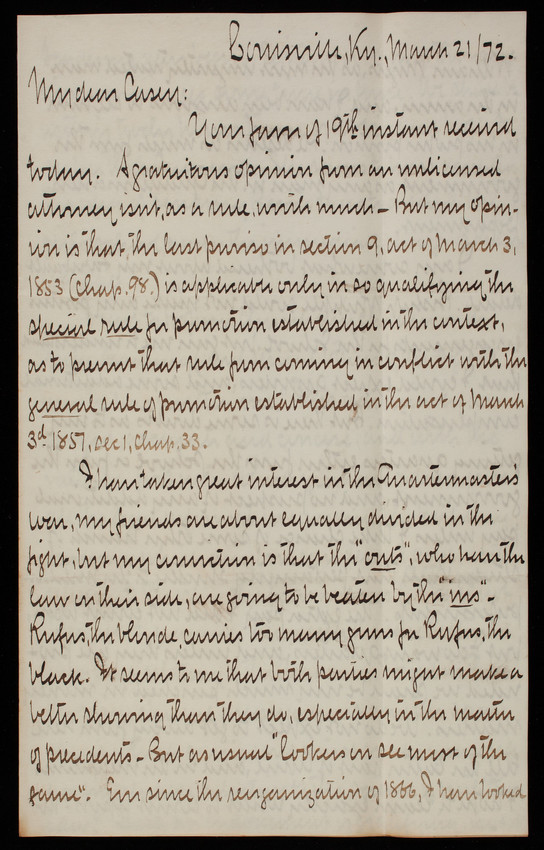 Louisville, Ky., March 21/72.
My dear Casey:
Your favor of 19th instant received
today. A gratuitous opinion from an unlicensed
attorney isn't, as a rule, worth much – But my opin-
ion is that, the last proviso in section 9, act of March 3,
1853 (Chap. 98.) is applicable only in so qualifying the
special rule for promotion established in the context,
as to prevent that rule from coming in conflict with the
general rule of promotion established, in the act of March
3d 1851, sec 1, Chap. 33.
I have taken great interest in the Quartermasters'
war, my friends are about equally divided in the
fight, but my conviction is that the "outs", who have the
law on their side, are going to be beaten by the "ins" –
Rufus, the blonde, carries too many guns for Rufus, the
black. It seems to me that both parties might make a
better showing than they do, especially in the matter
of precedents – But as usual "lookers on see most of the
game". Ever since the reorganization of 1866, I have looked